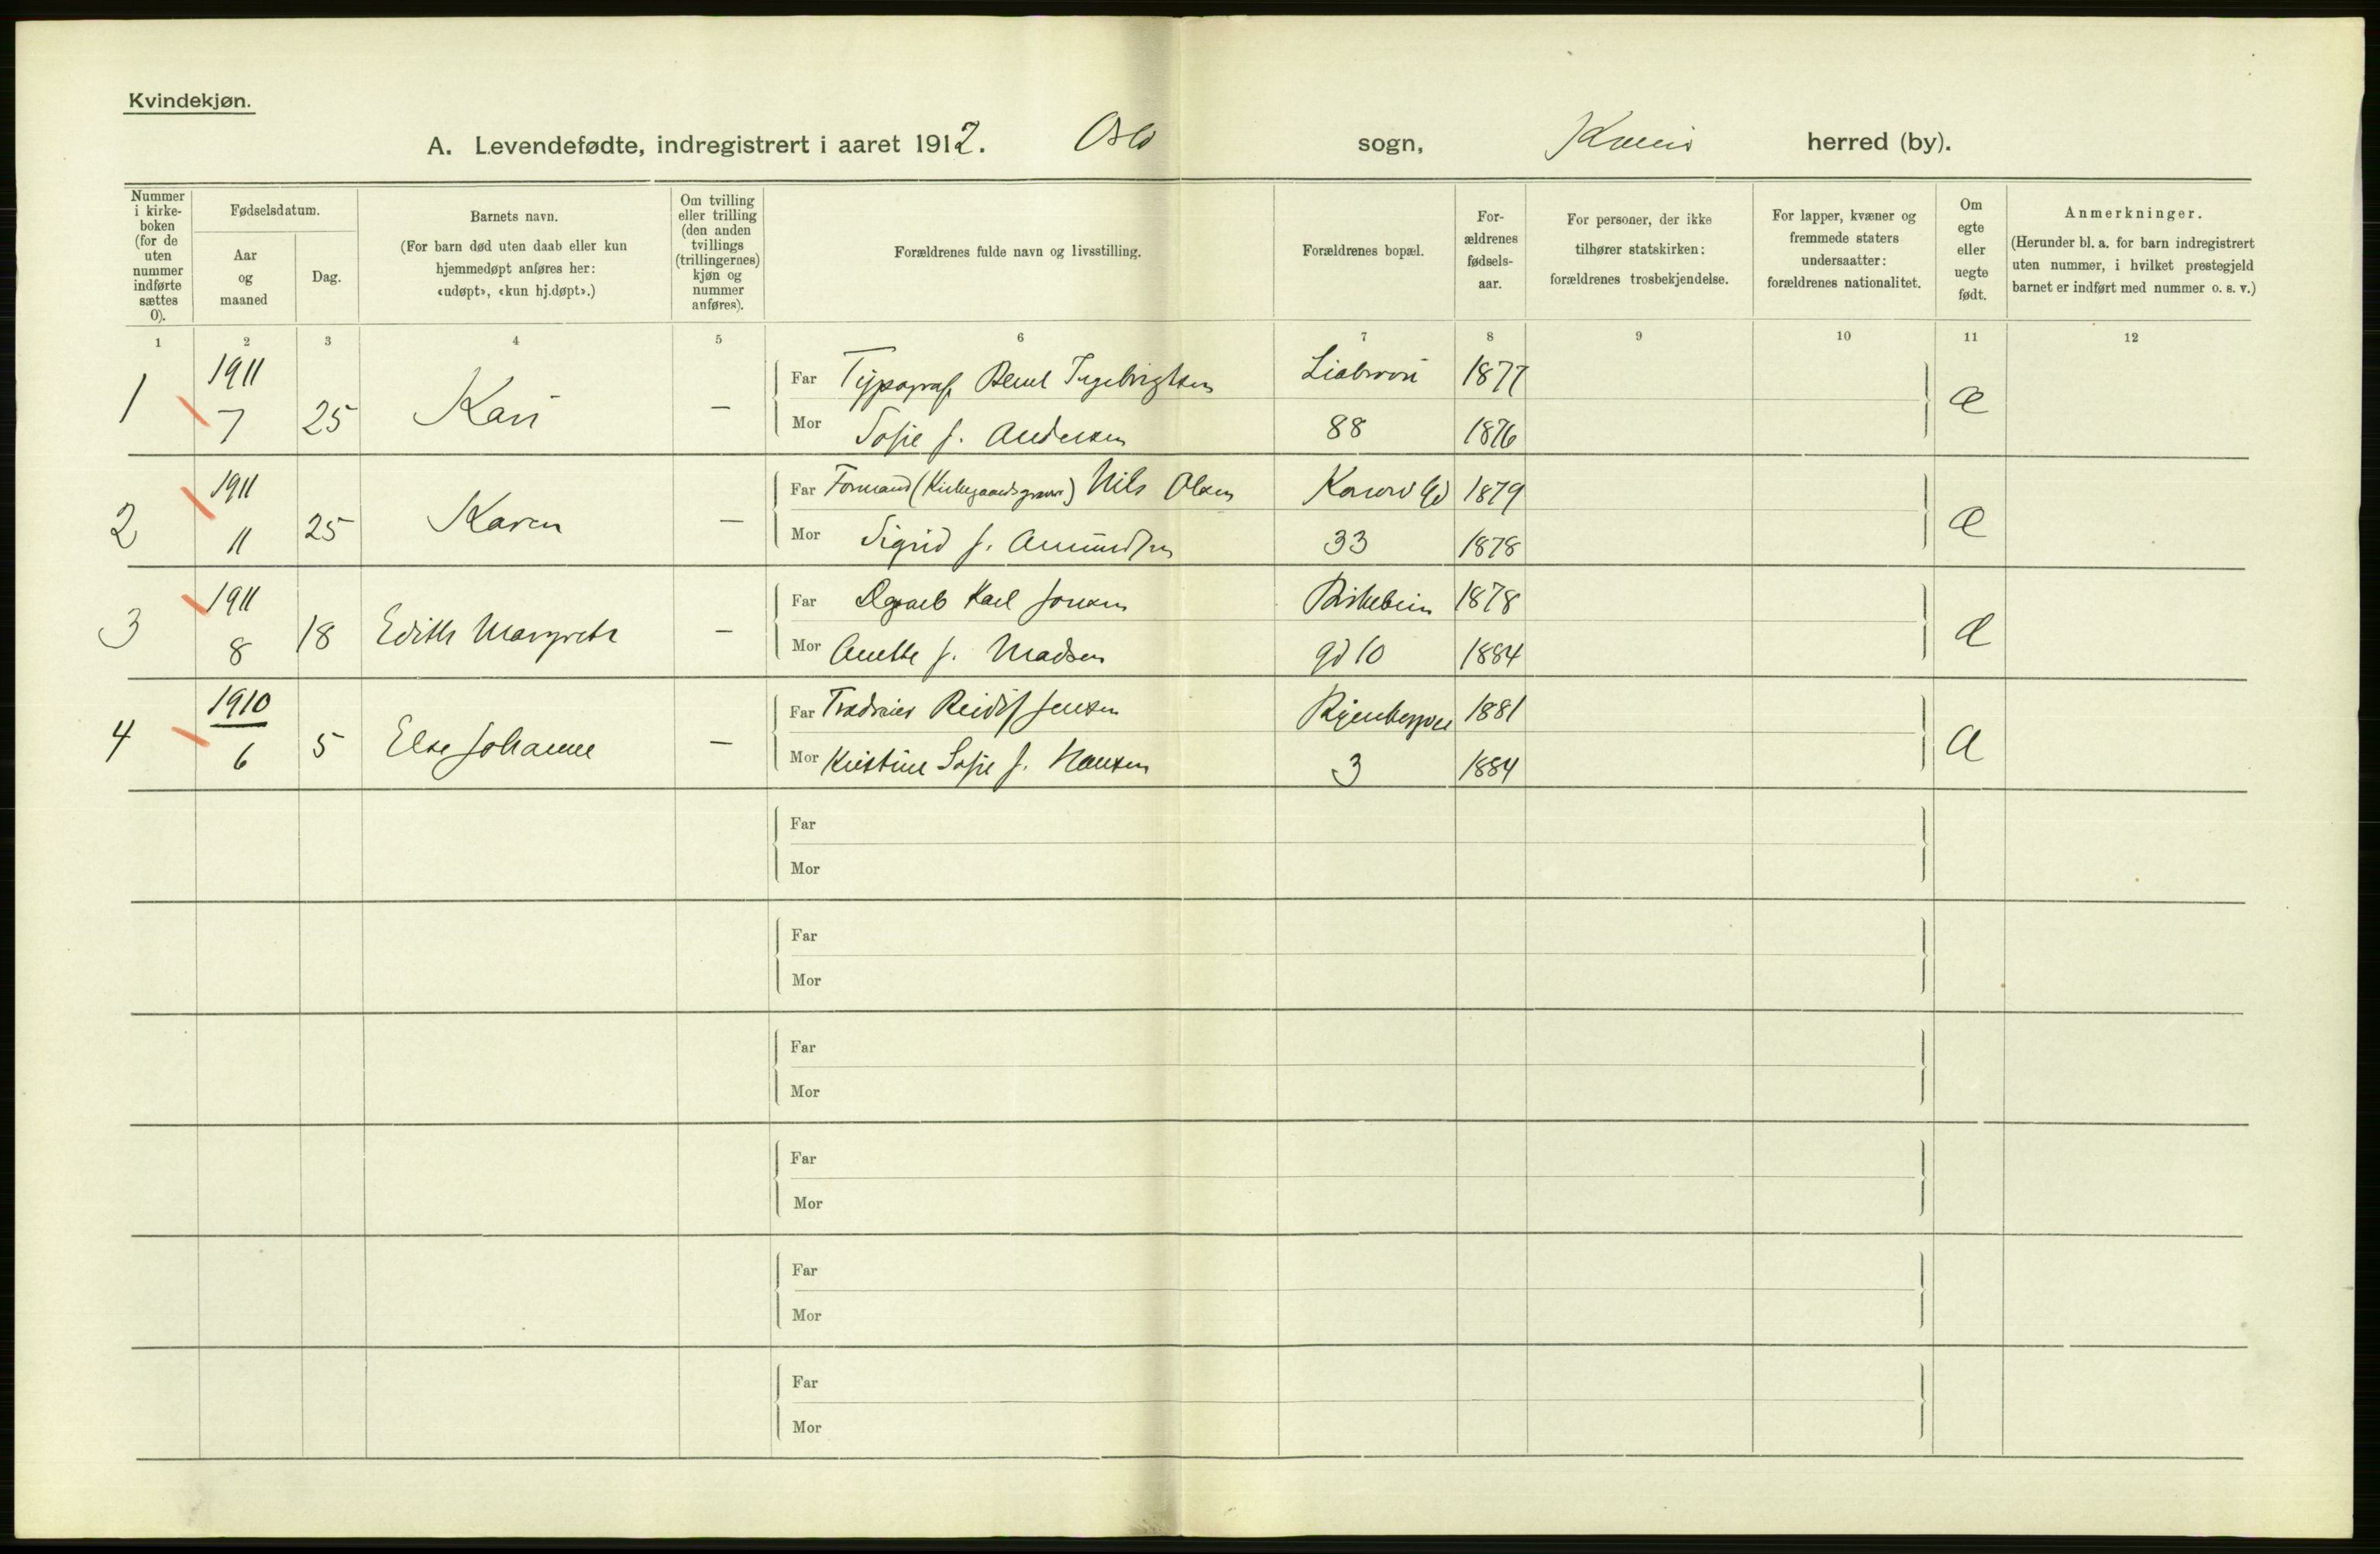 Kvindekjøn.
A. Levendefødte, indregistrert i aaret 1912. Oslo sogn, herred (by).
Nummer i kirke-boken (for de uten nummer indførte sættes 0).
Fødselsdatum.
Aar og maaned
Dag.
Barnets navn.
(For barn død uten daab eller kun hjemmedøpt anføres her: «udøpt», «kun hj.døpt».)
Om tvilling eller trilling (den anden tvillings (trillingernes) kjøn og nummer anføres).
Forældrenes fulde navn og livsstilling.
Forældrenes bopæl.
For-ældrenes fødsels-aar.
For personer, der ikke tilhører statskirken: forældrenes trosbekjendelse.
For lapper, kvæner og fremmede staters undersaatter: forældrenes nationalitet.
Om egte eller uegte født.
Anmerkninger.
(Herunder bl. a. for barn indregistrert uten nummer, i hvilket prestegjeld barnet er indført med nummer o. s. v.)
1 2 3 4 5 6 7 8 9 10 11 12
1911 Far Typograf Ingebrigtsen 1877
1 7 25 Kari — Mor Sofie f. Andersen 88 1876 æ
1911 Far Formand (Kirkegaardsgraver) Nils Olsen 1879
2 11 25 Karen — Mor Sigrid f. Amundsen 33 1878 æ
1911 Far Karl Jonsen 1878
3 8 18 Edith Margrete — Mor Anette f. Madsen gd 10 1884 æ
1910 Far Jensen 1881
4 6 5 Else Johanne — Mor Kristine Sofie f. Hansen 3 1884
Far
Mor
Far
Mor
Far
Mor
Far
Mor
Far
Mor
Far
Mor